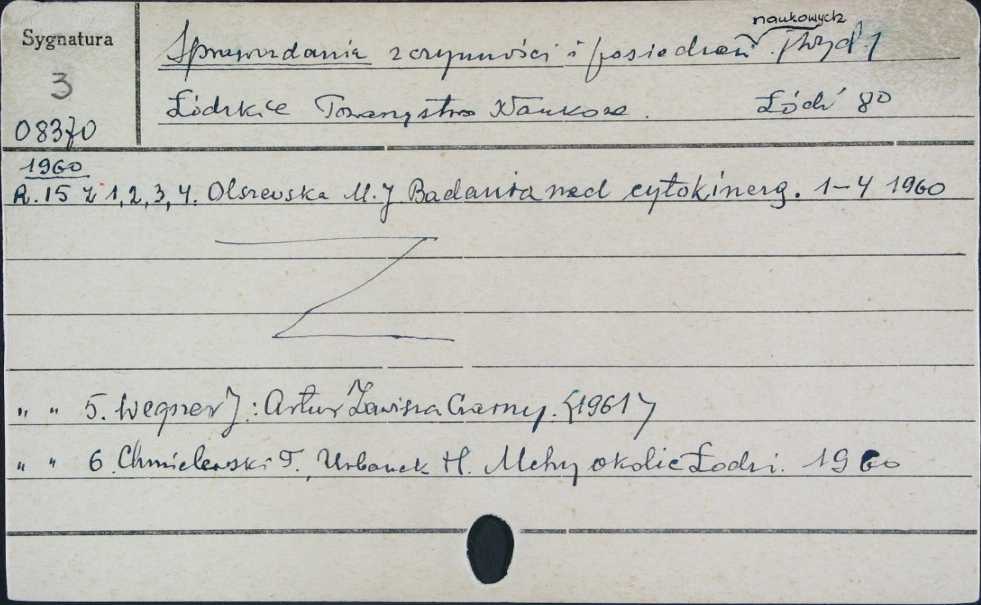 Sygnatura
3
08370
Sprawozdania z czynności i posiedzeń naukowych
Łódzkie Towarzystwo Naukowe. Łódź 80
1960
R. 15 z 1, 2, 3, 4. Olszewska M. J Badania nad cytokinezą. 1-4 1960
" " 5. Wegner J: Artur Zawisza Czarny. {1961}
" " 6. Chmielewski T, Urbanek H. Mchy okolic Łodzi. 1960